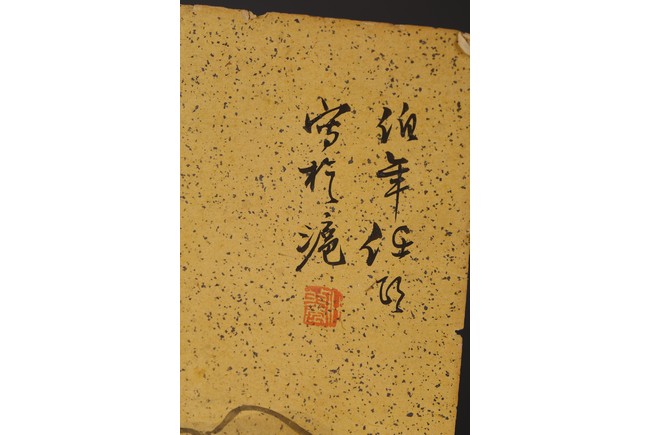 伯年任頤
寫於滬